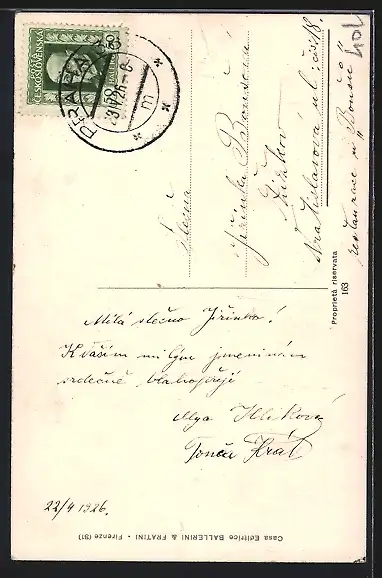 POŠTA
ČESKOSLOVENSKÁ
50
PRAHA
23.IV.26-6
m
Slečna
Jiřinka Boušová
Žižkov
Vratislavova ul. čís. 18.
restaurace u "Boušů"
Proprietà riservata
163
Milá slečno Jiřinko!
K Vašim milým jmeninám
srdečně blahopřejí
Olga Hliková
Tonča Král
22/4 1926.
Casa Editrice BALLERINI & FRATINI - Firenze (81)